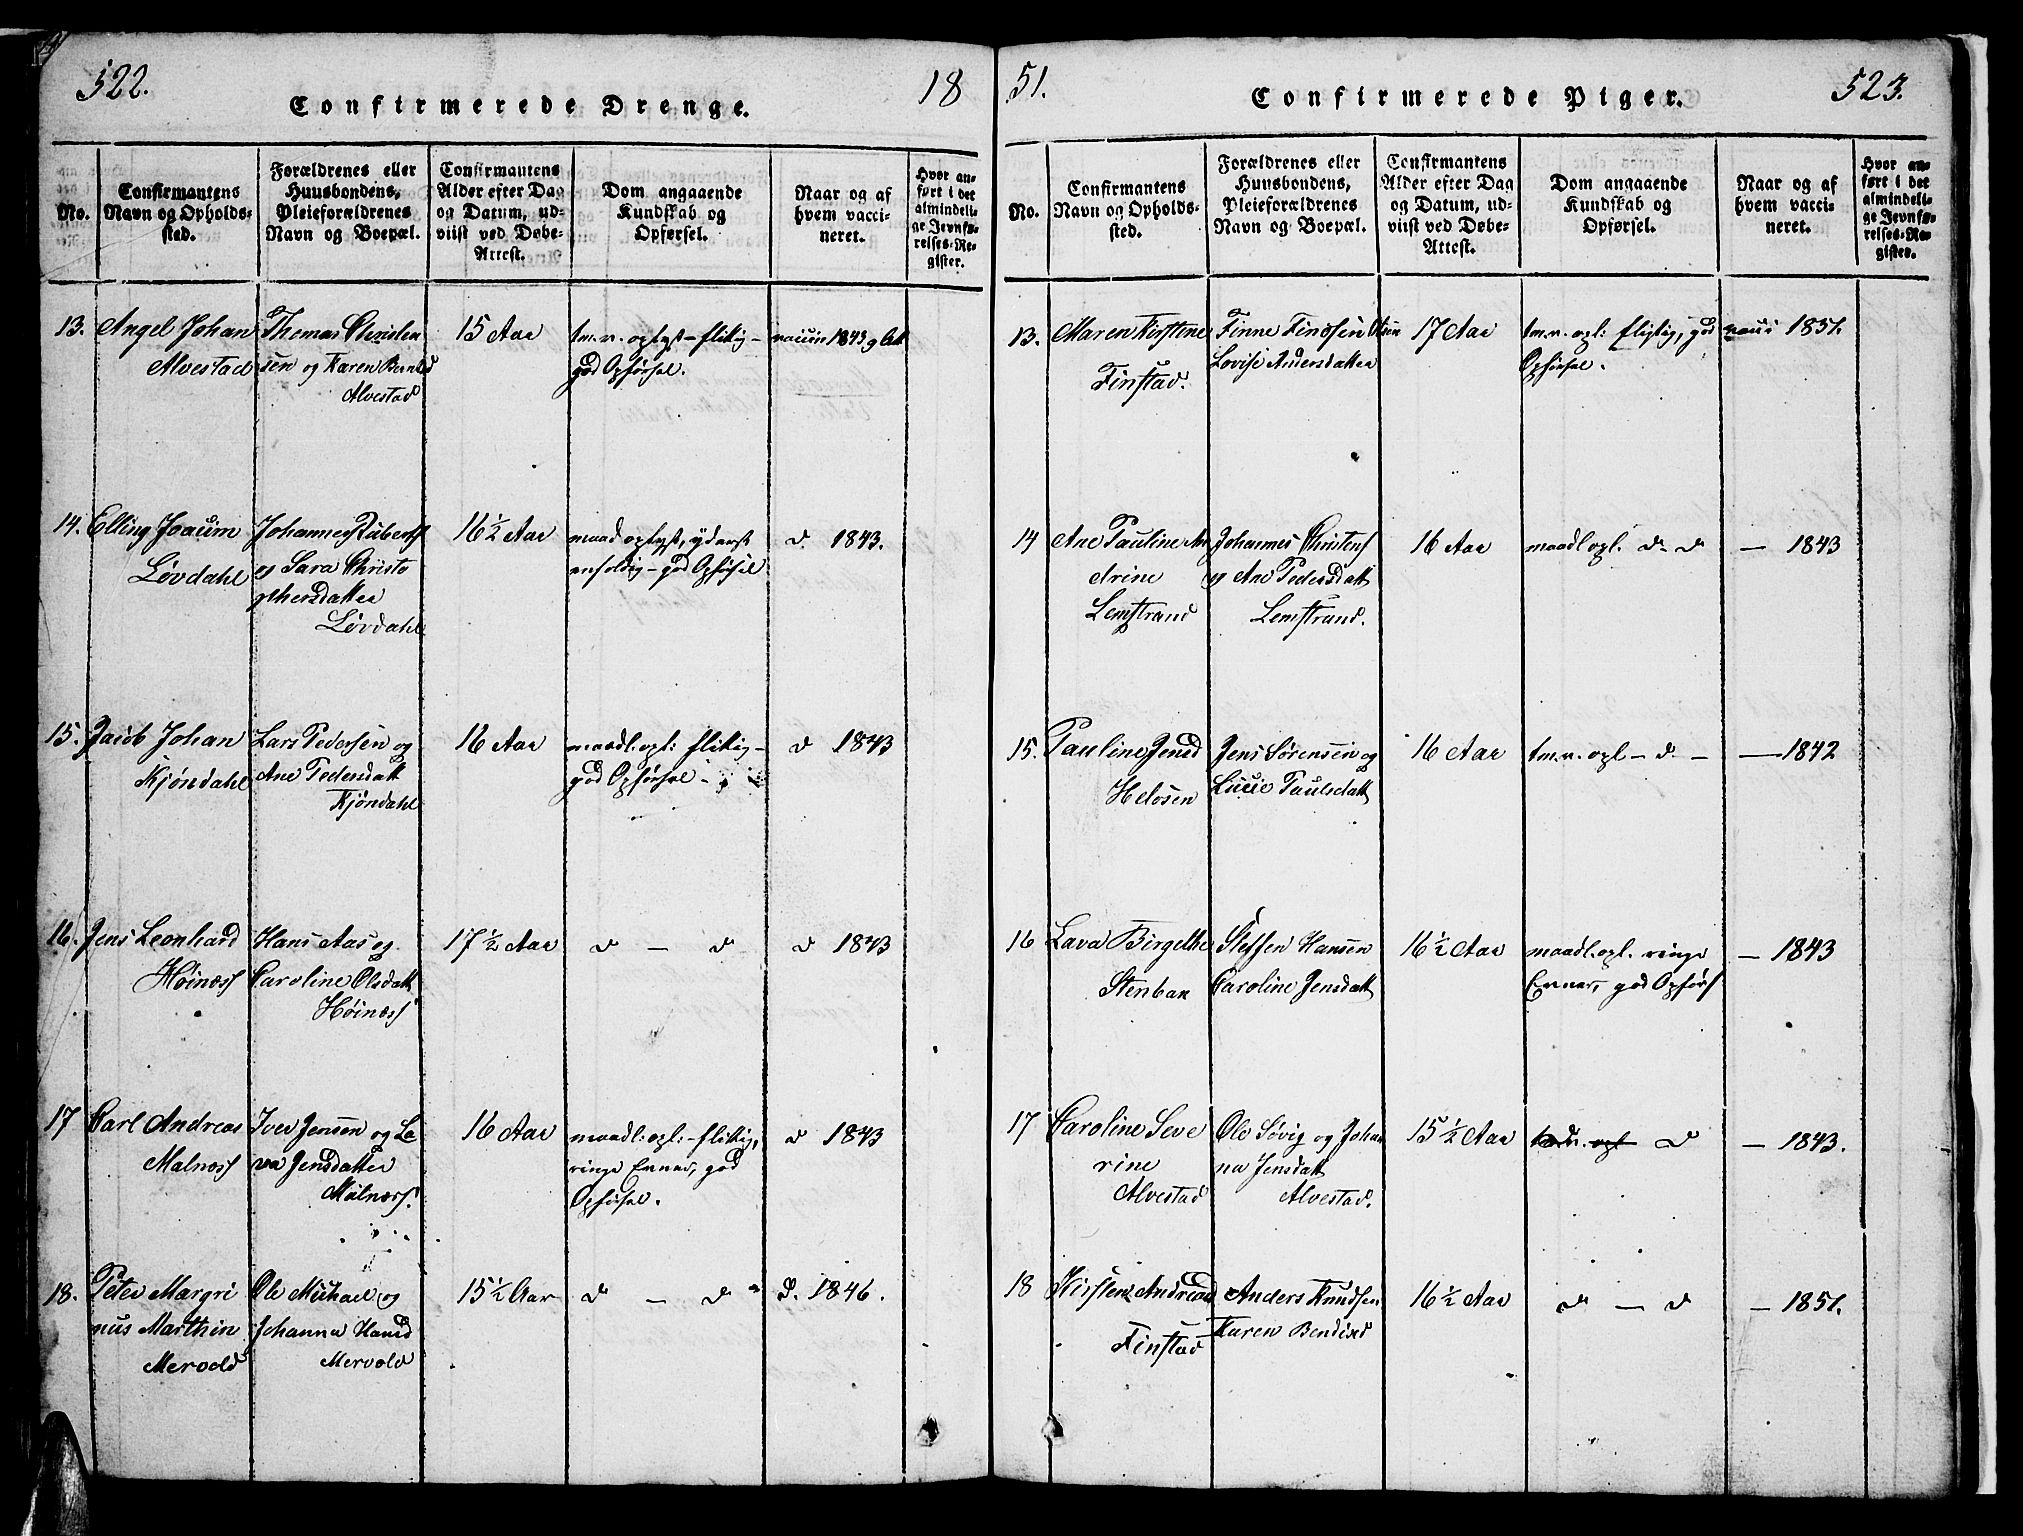 522.
18
Confirmerede Drenge.
No.
Confirmantens
Navn og Opholds-
sted.
Forældrenes eller
Huusbondens,
Pleieforældrenes
Navn og Boepæl.
Confirmantens
Alder efter Dag
og Datum, ud-
viist ved Døbe-
Attest.
Dom angaaende
Kundskab og
Opførsel.
Naar og af
hvem vacci-
neret.
Hvor an-
ført i det
almindeli-
ge Jevnfø-
relses-Re-
gister.
13.
Angel Johan
Alvestad
Thomas Christen
sen og Karen Berntsd
Alvestad
15 Aar
tm. v. oplyst - flittig -
god Opførsel.
vaccin 1843
14.
Elling Joacim
Løvdahl
Johannes Rubertss
og Sara Christo
phersdatter
Løvdahl
16 ½ Aar
maad. oplyst, yderst
enfoldig - god Opførsel
d. 1843.
15.
Jacob Johan
Kjøndahl
Lars Pedersen og
Ane Pedersdatt
Kjøndahl
16 Aar
maadl: opl: flittig -
god Opførsel -
d 1843
16.
Jens Leonhard
Høinæss
Hans Aas og
Caroline Olsdatt
Høinæss
17 ½ Aar
d - d
d 1843
17
Carl Andreas
Malnæss
Iver Jensen og La
va Jensdatter
Malnæss.
16 Aar
maadl: opl: - flittig,
ringe Evner, god
Opførsel.
d 1843
18.
Peter Margri
nus Marthin
Mervold
Ole Michael og
Johanna Hansd
Mervold
15 ½ Aar
d - d
d. 1846.
51.
523.
Confirmerede Piger.
No.
Confirmantens
Navn og Opholds-
sted.
Forældrenes eller
Huusbondens,
Pleieforældrenes
Navn og Boepæl.
Confirmantens
Alder efter Dag
og Datum, ud-
viist ved Døbe-
Attest.
Dom angaaende
Kundskab og
Opførsel.
Naar og af
hvem vacci-
neret.
Hvor an-
ført i det
almindeli-
ge Jevnfø-
relses-Re-
gister.
13.
Maren Kirstine
Finstad.
Finne Findsen
Lovise Andersdatter
17 Aar
tm. v. opl: flittig, god
Opførsel.
vacci 1851.
14
Ane Pauline An
drine
Lemstrand
Johannes Christens
og Ane Pedersdatt
Lemstrand.
16 Aar
maadl. opl. d. d
- 1843
15.
Pauline Jensd
Helosen
Jens Sørensen og
Lucie Paulsdatt
16 Aar
tm. v. opl - d. -
- 1842
16
Lava Birgethe
Stenbak
Steffen Hansen
Caroline Jensdatt
16 ½ Aar
maadl. opl. ringe
Evner, god Opførs
- 1843
17
Caroline Seve
rine
Alvestad
Ole Søvig og Johan
na Jensdatt
Alvestad.
15 ½ Aar
d
- 1843.
18
Kirsten Andreasd
Finstad
Anders Knudsen
Karen Bendixd
16 ½ Aar
d - d
- 1851.